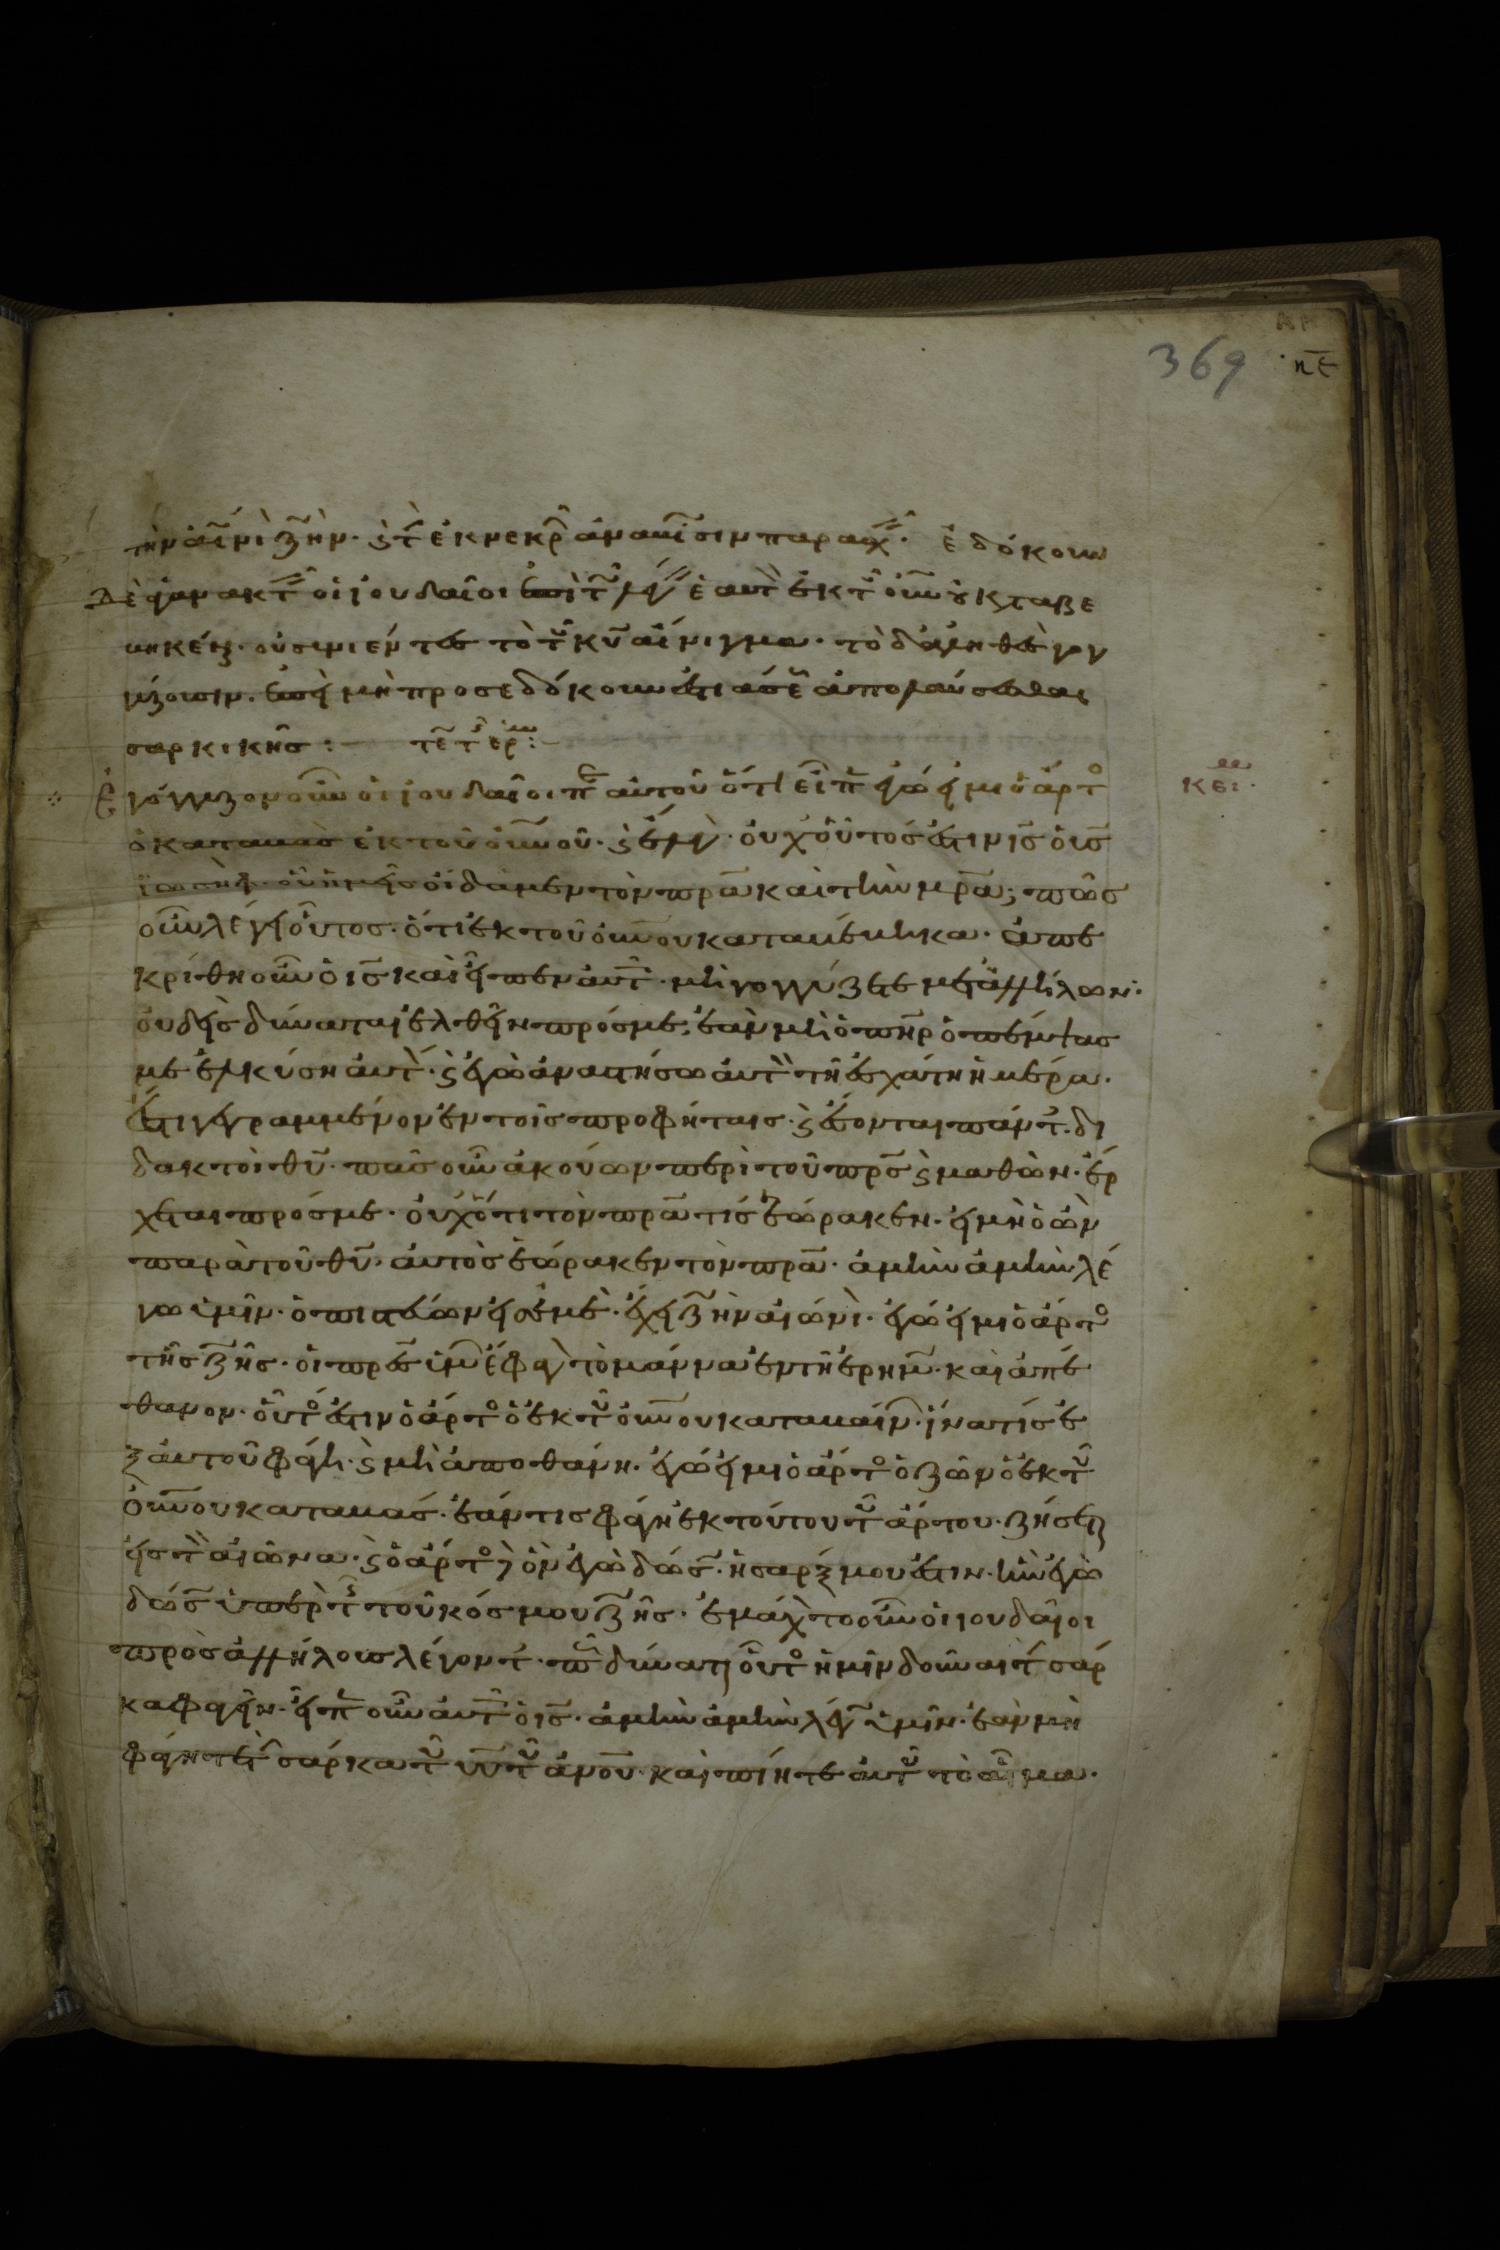 369 πε
τὴν αἰωνι ζωήν. ϛ τὴν ἐκ νεκρῶν ἀνάστασιν παρασχ. ἐδόκουν
δὲ ἀγανακτ οἱ ἰουδαῖοι ἐπὶ τῶ λέγ ἑαυτὸν ἐκ τοῦ οὐνου καταβε
βηκέναι. οὐ συνιέντες τὸ τοῦ κυ αἴνιγμα. τὸ δ ἀληθὲς γογ
γύζουσιν. ἐπεὶ μὴ προσεδόκουν ἔτι τραπέζης ἀπολαύσεσθαι
σαρκικῆς :
ἐγόγγυζον οὖν οἱ ἰουδαῖοι περὶ αὐτοῦ ὅτι εἶπεν ἐγώ εἰμι ὁ ἄρτος
κει.
ὁ καταβὰς ἐκ τοῦ οὐνοῦ. ϛ ἔλεγον. οὐχ οὗτός ἐστιν ις ὁ υς
ἰωσὴφ. οὗ ἡμεῖς οἴδαμεν τὸν πρα καὶ τὴν μρα; πῶς
οὖν λέγει οὗτος. ὅτι ἐκ τοῦ οὐνου καταβέβηκα. ἀπε
κρίθη οὖν ὁ ις καὶ εἶπεν αὐτοῖς. μὴ γογγύζετε μετ ἀλλήλων.
οὐδεὶς δύναται ἐλθεῖν πρός με. ἐὰν μὴ ὁ πηρ ὁ πέμψας
με ἑλκύση αὐτόν. ϛ ἐγὼ ἀναστήσω αὐτὸν τῆ ἐσχάτη ἡμέρα.
ἔστι γεγραμμένον ἐν τοῖς προφήταις. ϛ ἔσονται πάντες δι
δακτοὶ θυ. πᾶς οὖν ἀκούων περὶ τοῦ πρς ϛ μαθὼν. ἔρ
χεται πρός με. οὐχ ὅτι τὸν πρα τίς ἑώρακεν. εἰ μὴ ὁ ὢν
παρὰ τοῦ θυ. αὐτὸς ἑώρακεν τὸν πρα. ἀμὴν ἀμὴν λέ
γω ὑμῖν. ὁ πιστεύων εἰς ἐμὲ. ἔχει ζωὴν αἰώνιον. ἐγώ εἰμι ὁ ἄρτος
τῆς ζωῆς. οἱ πρες ὑμῶν ἔφαγον τὸ μάννα ἐν τῆ ἐρήμω. καὶ ἀπέ
θανον. οὗτός ἐστιν ὁ ἄρτος ὁ ἐκ τοῦ οὐνου καταβαίνων. ἵνα τίς ἐ
ξ αὐτοῦ φάγη. ϛ μὴ ἀποθάνη. ἐγώ εἰμι ὁ ἄρτος ὁ ζῶν ὁ ἐκ τοῦ
οὐνου καταβάς. ἐάν τις φάγη ἐκ τούτου τοῦ ἄρτου. ζήσεται
εἰς τὸν αἰῶνα. ϛ ὁ ἄρτος δὲ ὃν ἐγὼ δώσω. ἡ σάρξ μου ἐστιν. ἣν ἐγὼ
δώσω ὑπὲρ τῆς τοῦ κόσμου ζωῆς. ἐμάχοντο οὖν οἱ ἰουδαῖοι
πρὸς ἀλλήλους λέγοντες. πῶς δύναται οὗτος ἡμῖν δοῦναι τὴν σάρ
κα φαγεῖν. εἶπεν οὖν αὐτοῖς ὁ ις. ἀμὴν ἀμὴν λέγω ὑμῖν. ἐὰν μὴ
φάγητε τὴν σάρκα τοῦ υυ τοῦ ἀνου. καὶ πίητε αὐτοῦ τὸ αἷμα.